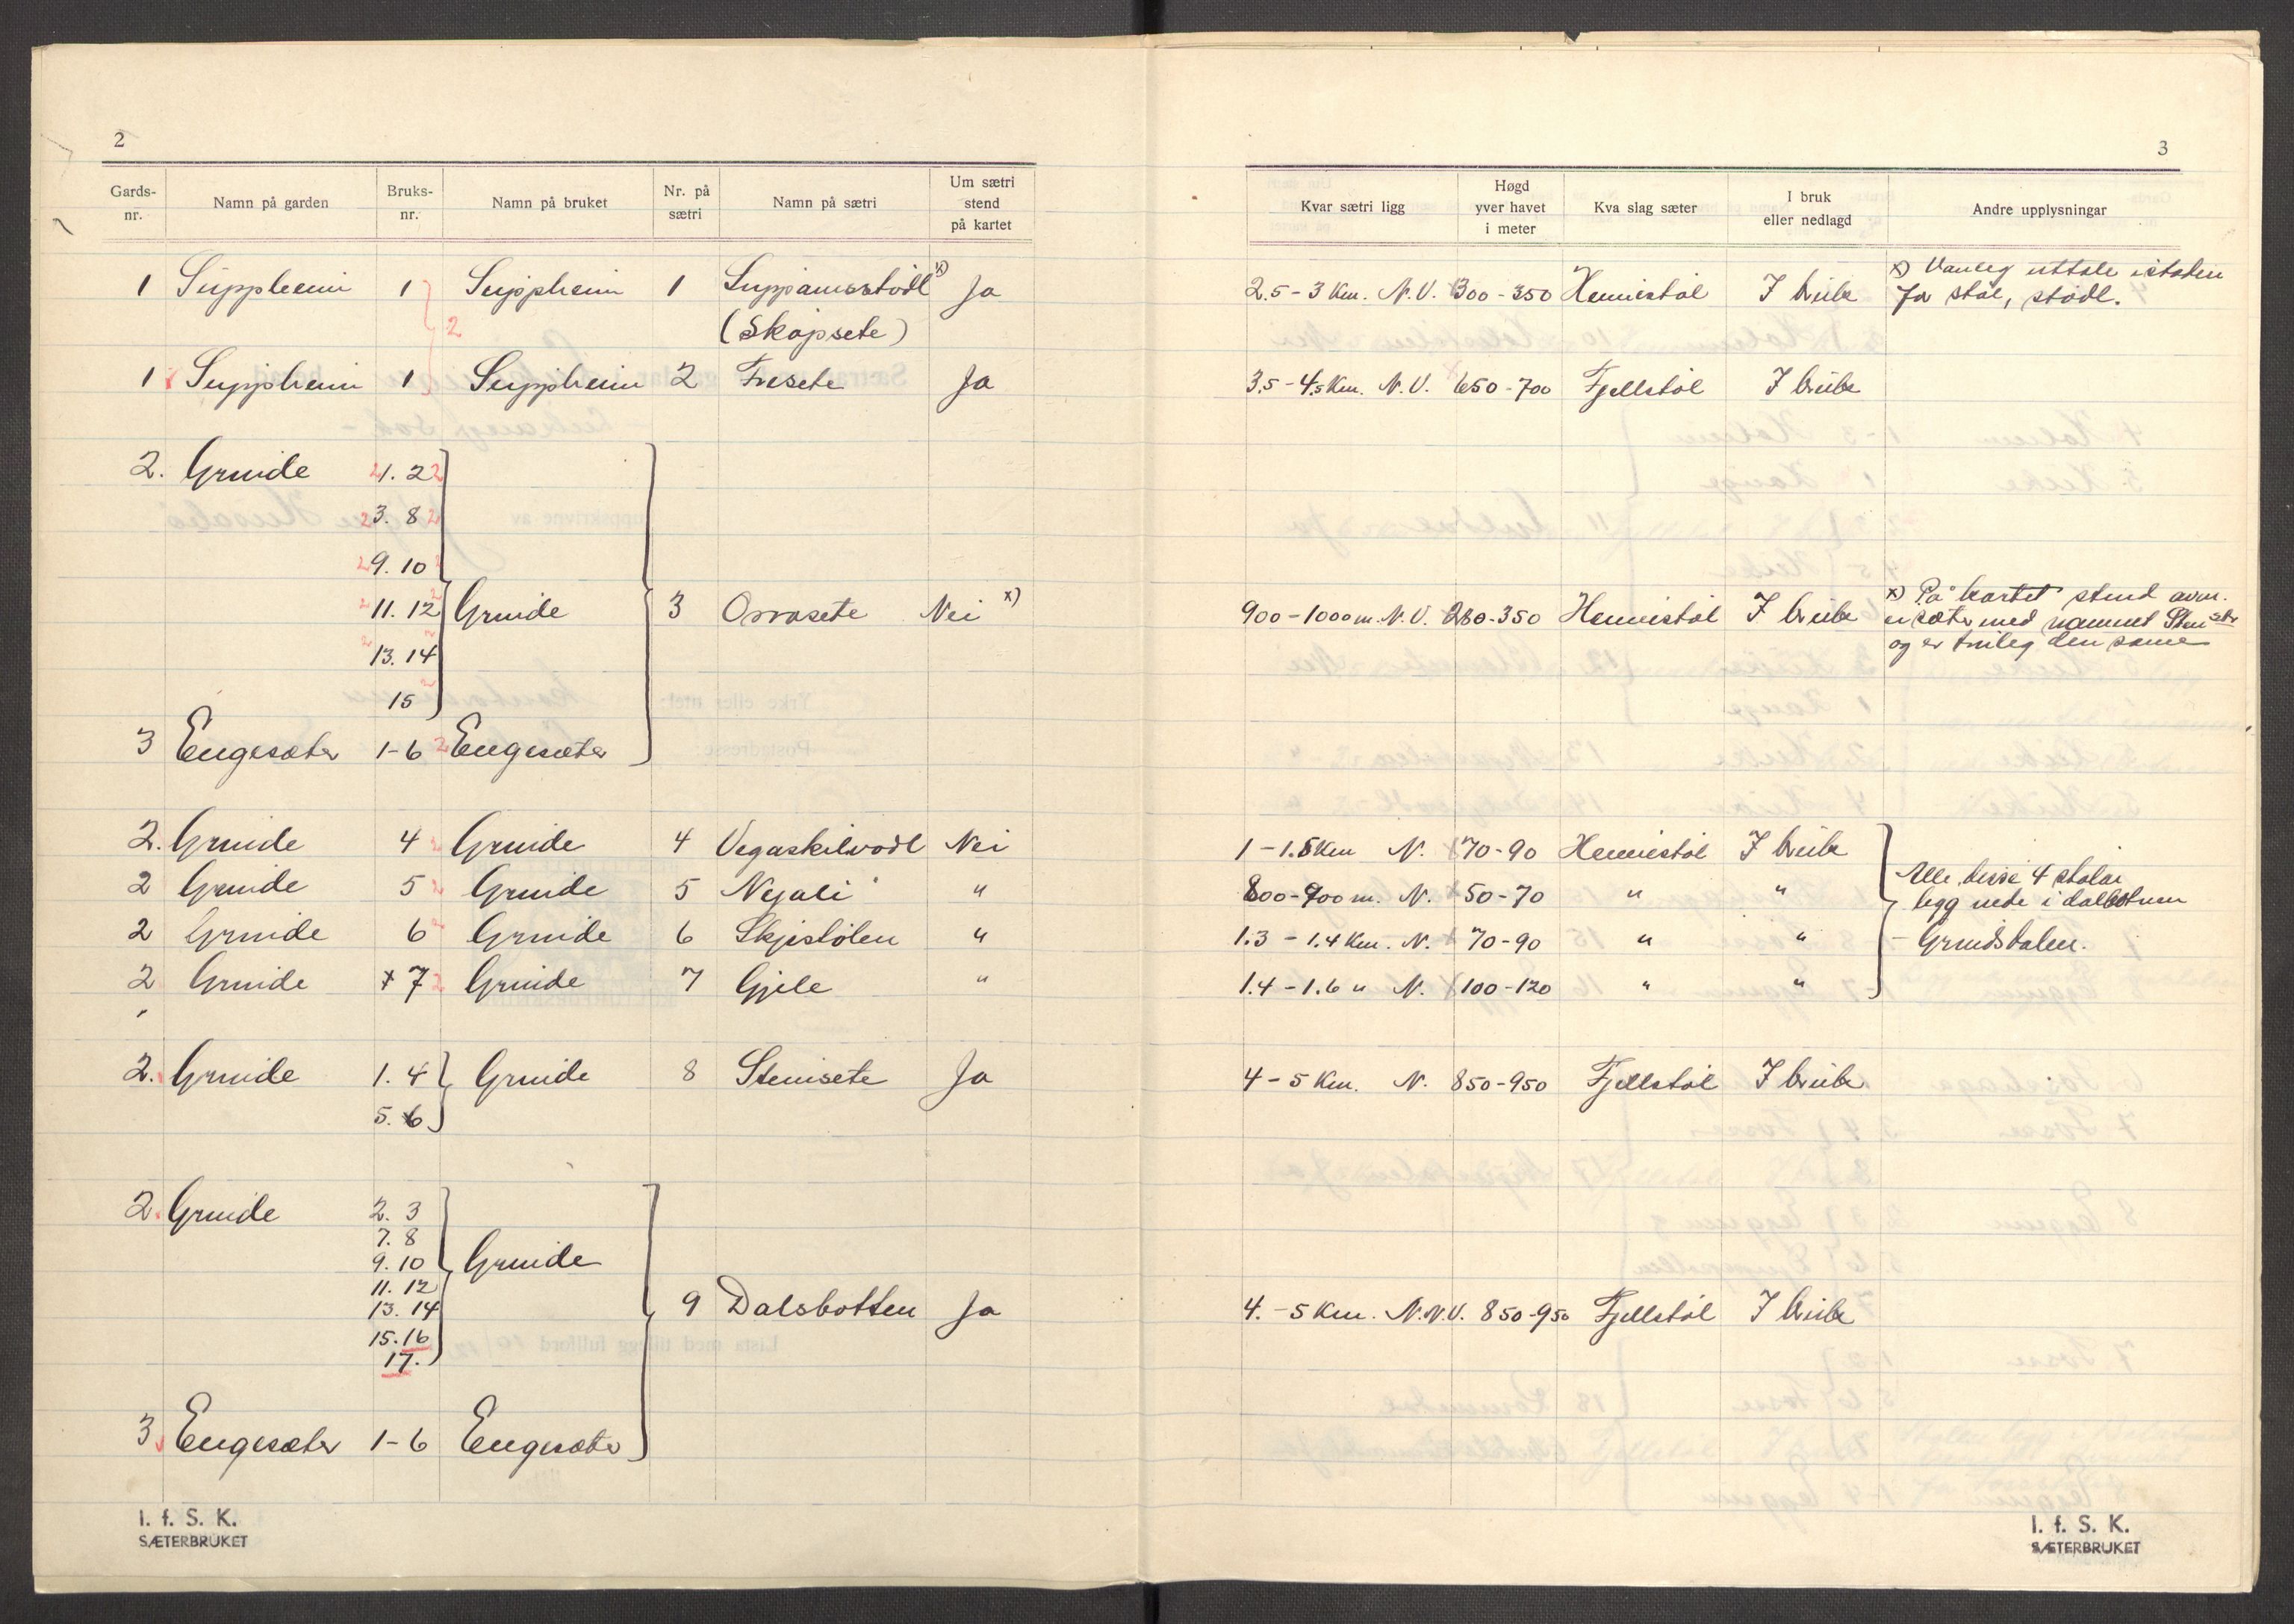 2
Gards-
nr.
Namn på garden
Bruks-
nr.
Namn på bruket
Nr. på
sætri
Namn på sætri
Um sætri
stend
på kartet
1 Suppheim 1 Suppheim 1 Suppamsstødl x) Ja
2 (Skåpsete)
1 Suppheim 1 Suppheim 2 Fresete Ja
2. Grinde 1. 2
3. 8
9. 10
11. 12 Grinde 3 Orrasete Nei x)
13. 14
15
3 Engesæter 1-6 Engesæter
2. Grinde 4 Grinde 4 Vegaskilvodl Nei
2 Grinde 5 Grinde 5 Nyali "
2 Grinde 6 Grinde 6 Skjestølen "
2 Grinde 7 Grinde 7 Gjele "
2. Grinde 1. 4 Grinde 8 Steinsete Ja
5. 6
2. Grinde 2. 3
7. 8
9. 10 Grinde
11. 12
13. 14 9 Dalsbotten Ja
15. 16
17.
3 Engesæter 1-6 Engesæter
I. f. S. K.
SÆTERBRUKET
3
Kvar sætri ligg
Høgd
yver havet
i meter
Kva slag sæter
I bruk
eller nedlagd
Andre upplysningar
x) Vanleg uttale istaden
2.5 - 3 Km. N.V. 300-350 Heimestøl I bruk for støl, stødl.
3.5 - 4.5 Km. N.V. 650-700 Fjellstøl I bruk
x) På kartet stend avm.
900 - 1000 m. N.V. 280-350 Heimestøl I bruk ei sæter med namnet
og er truleg den same
1 - 1.5 Km N. 70-90 Heimestøl I bruk
Alle desse 4 stølar
800-900 m. N. 50-70 " " ligg nede i dalbotnen
1.3 - 1.4 Km. N. 70-90 " " - Grindsdalen.
1.4 - 1.6 " N. 100-120 " "
4 - 5 Km. N. 850-950 Fjellstøl I bruk
4. - 5 Km. N.N.V. 850-950 Fjellstøl I bruk
I. f. S. K.
SÆTERBRUKET